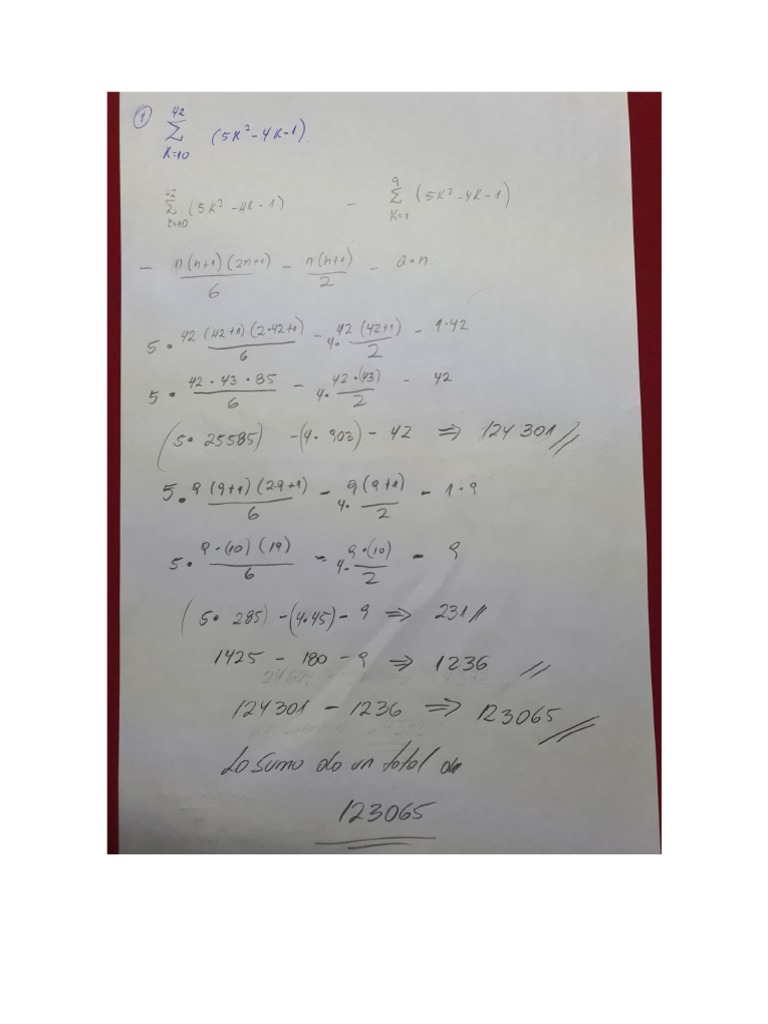 ① 42
Σ (5K² - 4K - 1)
K=10
42 9
Σ (5K² - 4K - 1) - Σ (5K² - 4K - 1)
K=10 K=1
- n(n+1)(2n+1)/6 - n(n+1)/2 - a•n
5 • 42(42+1)(2•42+1)/6 - 4• 42(42+1)/2 - 1•42
5 • 42 • 43 • 85/6 - 4• 42•(43)/2 - 42
(5• 25585) - (4• 903) - 42 ⇒ 124301//
5 • 9(9+1)(2.9+1)/6 - 4• 9(9+1)/2 - 1•9
5 • 9•(10)(19)/6 - 4• 9•(10)/2 - 9
(5• 285) - (4•45) - 9 ⇒ 231//
1425 - 180 - 9 ⇒ 1236 //
124301 - 1236 ⇒ 123065 //
La suma da un total de
123065